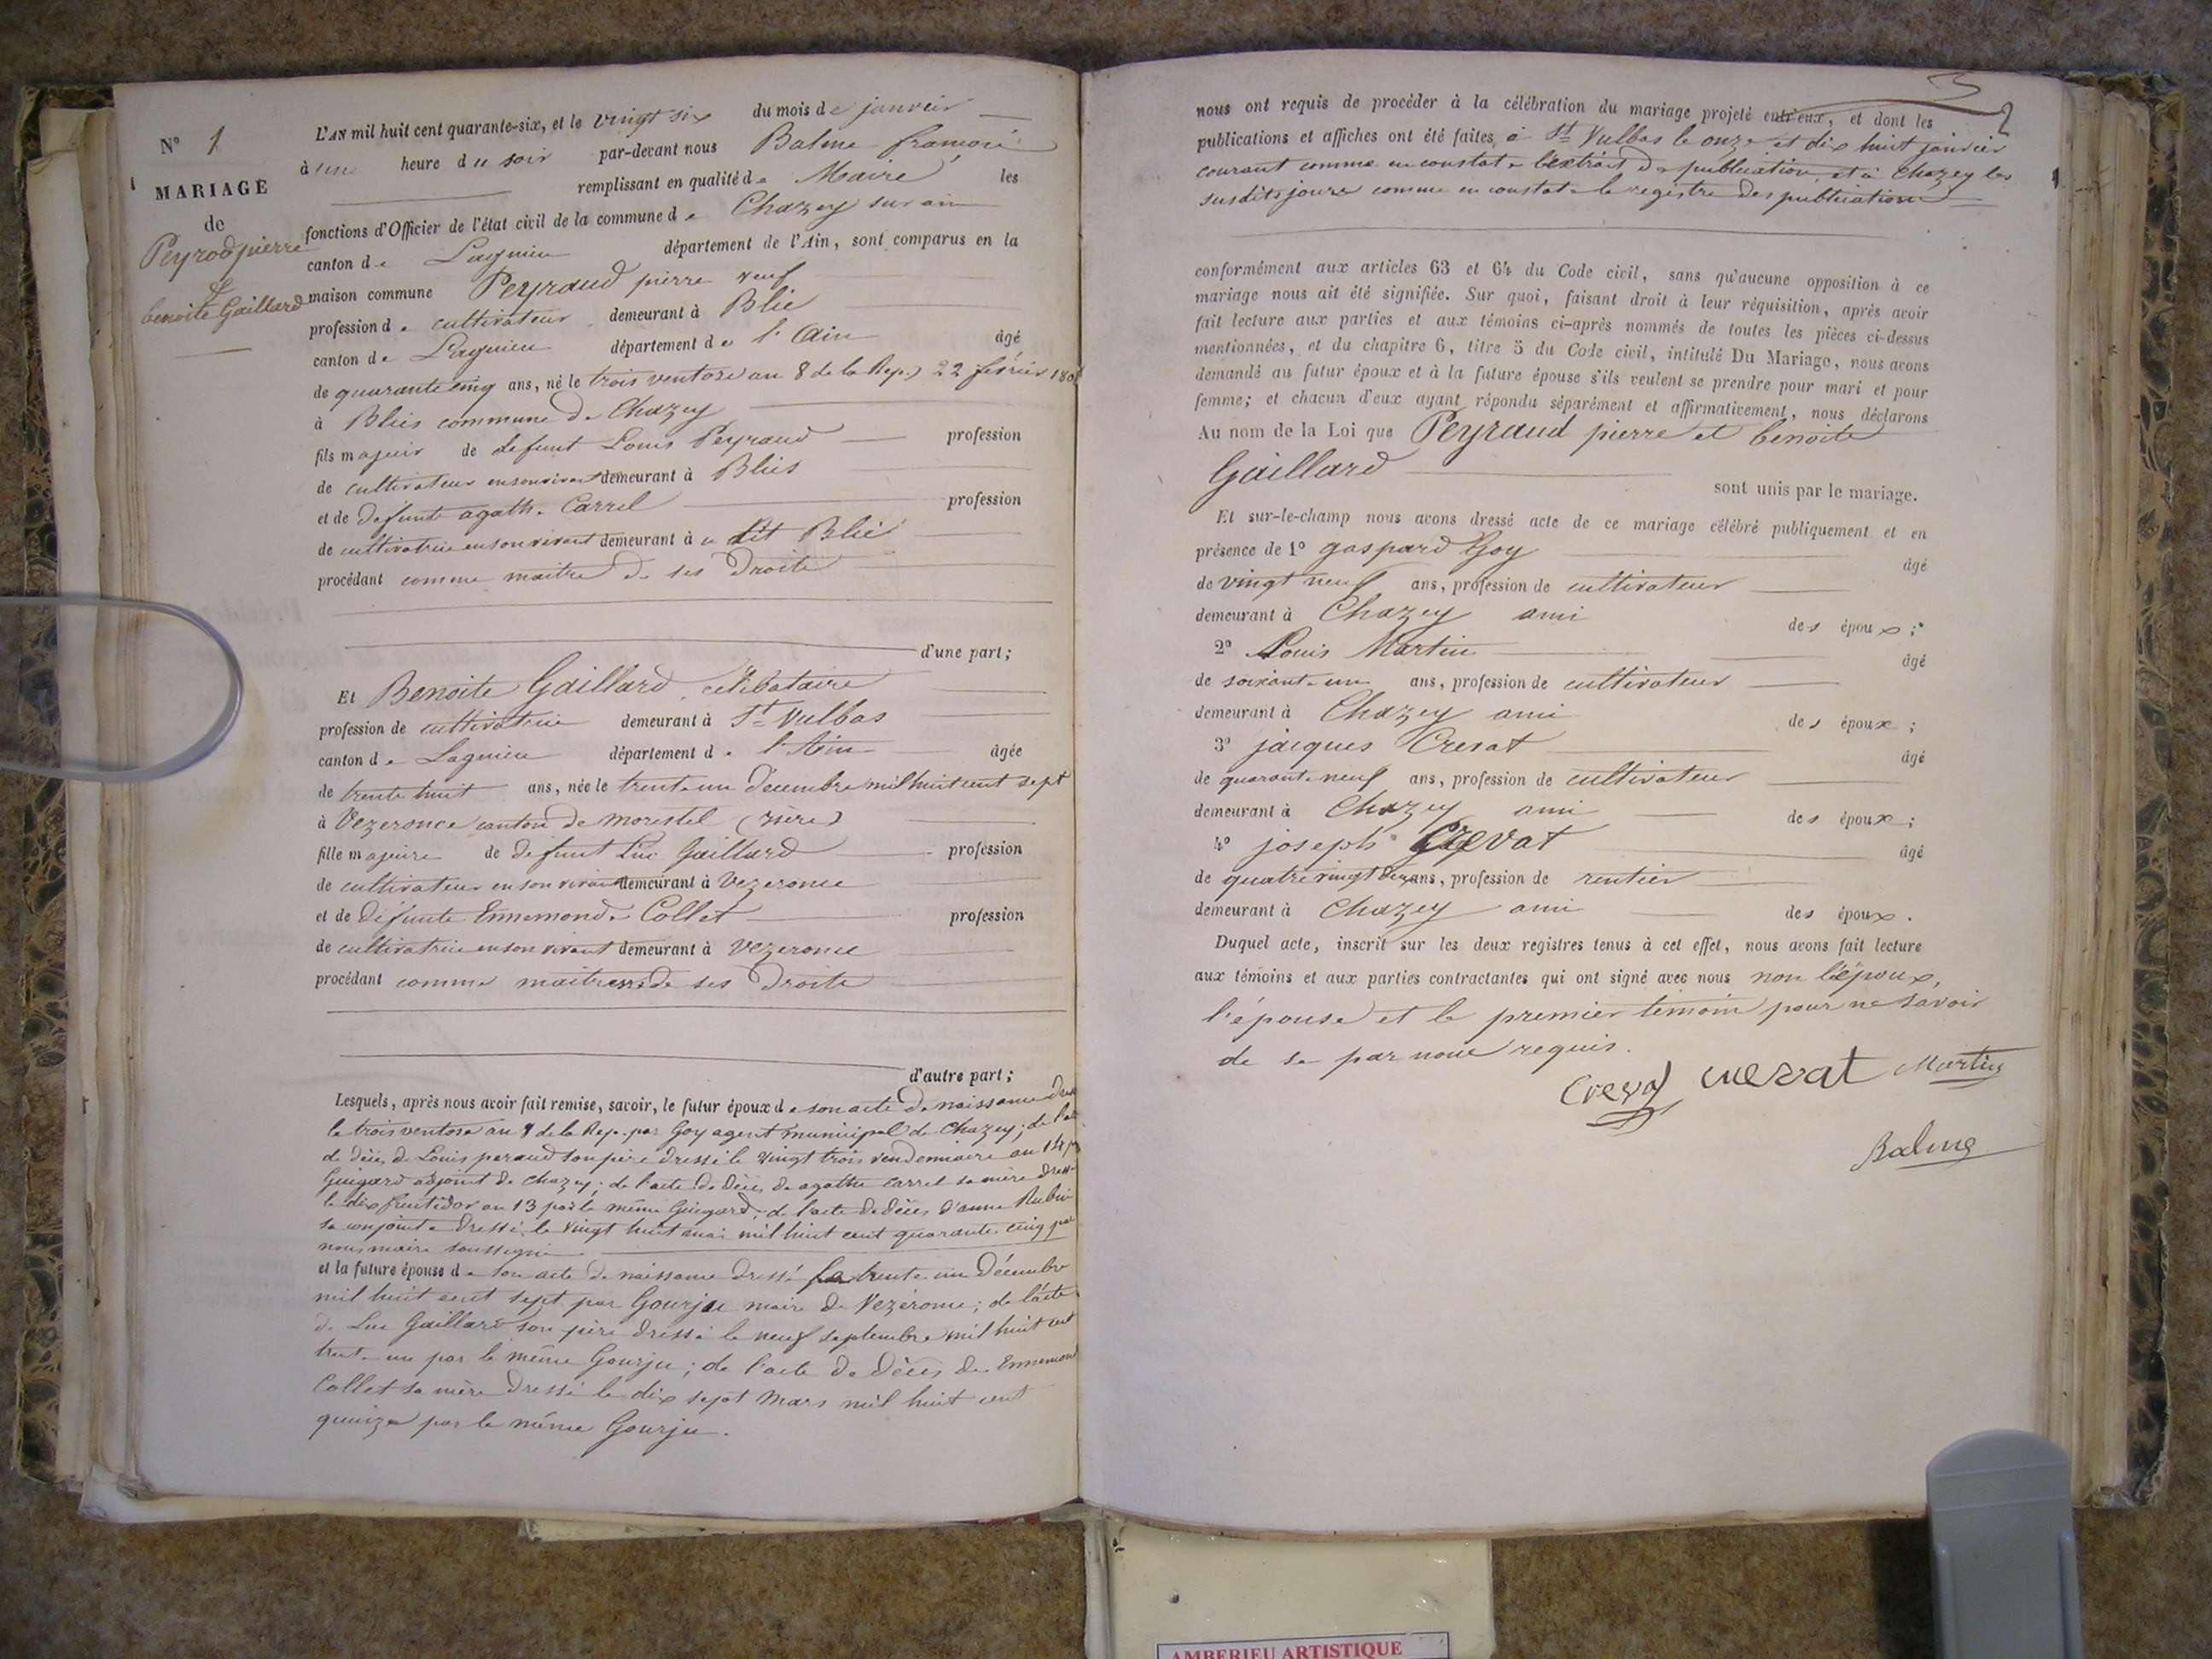 N° 1
MARIAGE
de
Peyrod pierre
&
benoite Gaillard
L'AN mil huit cent quarante-six, et le vingt six du mois de janvier
à une heure du soir par-devant nous Balme
remplissant en qualité de Maire les
fonctions d'Officier de l'état civil de la commune de Chazey sur ain
canton de Lagnieu département de l'Ain, sont comparus en la
maison commune Peyraud pierre veuf
profession de cultivateur demeurant à Blie
canton de Lagnieu département de l'Ain âgé
de quarante cinq ans, né le trois ventose an 8 de la Rep.) 22 février 180
à Blies commune de Chazey
fils majeur de defunt Louis Peyraud profession
de cultivateur en son vivant demeurant à Blies
et de defunte agathe Carrel profession
de cultivatrice en son vivant demeurant à u dit Blié
procédant comme maitre de ses Droits
d'une part;
Et Benoite Gaillard, célibataire
profession de cultivatrice demeurant à St Vulbas
canton de Lagnieu département de l'Ain âgée
de trente huit ans, née le trente un Décembre mil huit cent sept
à Vezeronce canton de Morestel (Isère)
fille majeure de defunt Luc Gaillard profession
de cultivateur en son vivant demeurant à Vezeronce
et de défunte Ennemonde Collet profession
de cultivatrice en son vivant demeurant à Vezeronce
procédant comme maitresse de ses Droits
d'autre part;
Lesquels, après nous avoir fait remise, savoir, le futur époux de son acte de naissance
le trois ventose an 8 de la Rep. par Goy agent municipal de Chazey; de l'
de décès de Louis peraud son père dressé le vingt trois vendemiaire an 14
Guigard adjoint de chazey; de l'acte de décès de agathe carrel sa mère
le dix fructidor an 13 par le même Guigard; de l'acte de décès d'anne Rubin
sa conjointe dressé le vingt huit mai mil huit cent quarante cinq par
nous maire soussigné
et la future épouse de son acte de naissance dressé le trente un Décembre
mil huit cent sept par Gourju maire de Vezeronce; de l'acte
de Luc Gaillard son père dressé le neuf septembre mil huit cent
trente un par le même Gourju; de l'acte de décès de Ennemonde
Collet sa mère dressé le dix sept Mars mil huit cent
quinze par le même Gourju.
nous ont requis de procéder à la célébration du mariage projeté entr'eux, et dont les
publications et affiches ont été faites, à St Vulbas le onze et dix huit janvier
courant comme en constate l'extrait de publication, et à Chazey les
susdits jours comme en constate le registre des publications
conformément aux articles 63 et 64 du Code civil, sans qu'aucune opposition à ce
mariage nous ait été signifiée. Sur quoi, faisant droit à leur réquisition, après avoir
fait lecture aux parties et aux témoins ci-après nommés de toutes les pièces ci-dessus
mentionnées, et du chapitre 6, titre 5 du Code civil, intitulé Du Mariage, nous avons
demandé au futur époux et à la future épouse s'ils veulent se prendre pour mari et pour
femme; et chacun d'eux ayant répondu séparément et affirmativement, nous déclarons
Au nom de la Loi que Peyraud pierre et benoite
Gaillard
sont unis par le mariage.
Et sur-le-champ nous avons dressé acte de ce mariage célébré publiquement et en
présence de 1° gaspard Goy âgé
de vingt neuf ans, profession de cultivateur
demeurant à Chazey ami des époux;
2° Louis Martin âgé
de soixante un ans, profession de cultivateur
demeurant à Chazey ami des époux;
3° jacques Crevat âgé
de quarante neuf ans, profession de cultivateur
demeurant à Chazey ami des époux;
4° joseph Crevat âgé
de quatre vingt deux ans, profession de rentier
demeurant à Chazey ami des époux.
Duquel acte, inscrit sur les deux registres tenus à cet effet, nous avons fait lecture
aux témoins et aux parties contractantes qui ont signé avec nous non l'époux,
l'épouse et le premier témoin pour ne savoir
de ce par nous requis.
Crevat crevat Martin
Balme
AMBERIEU ARTISTIQUE